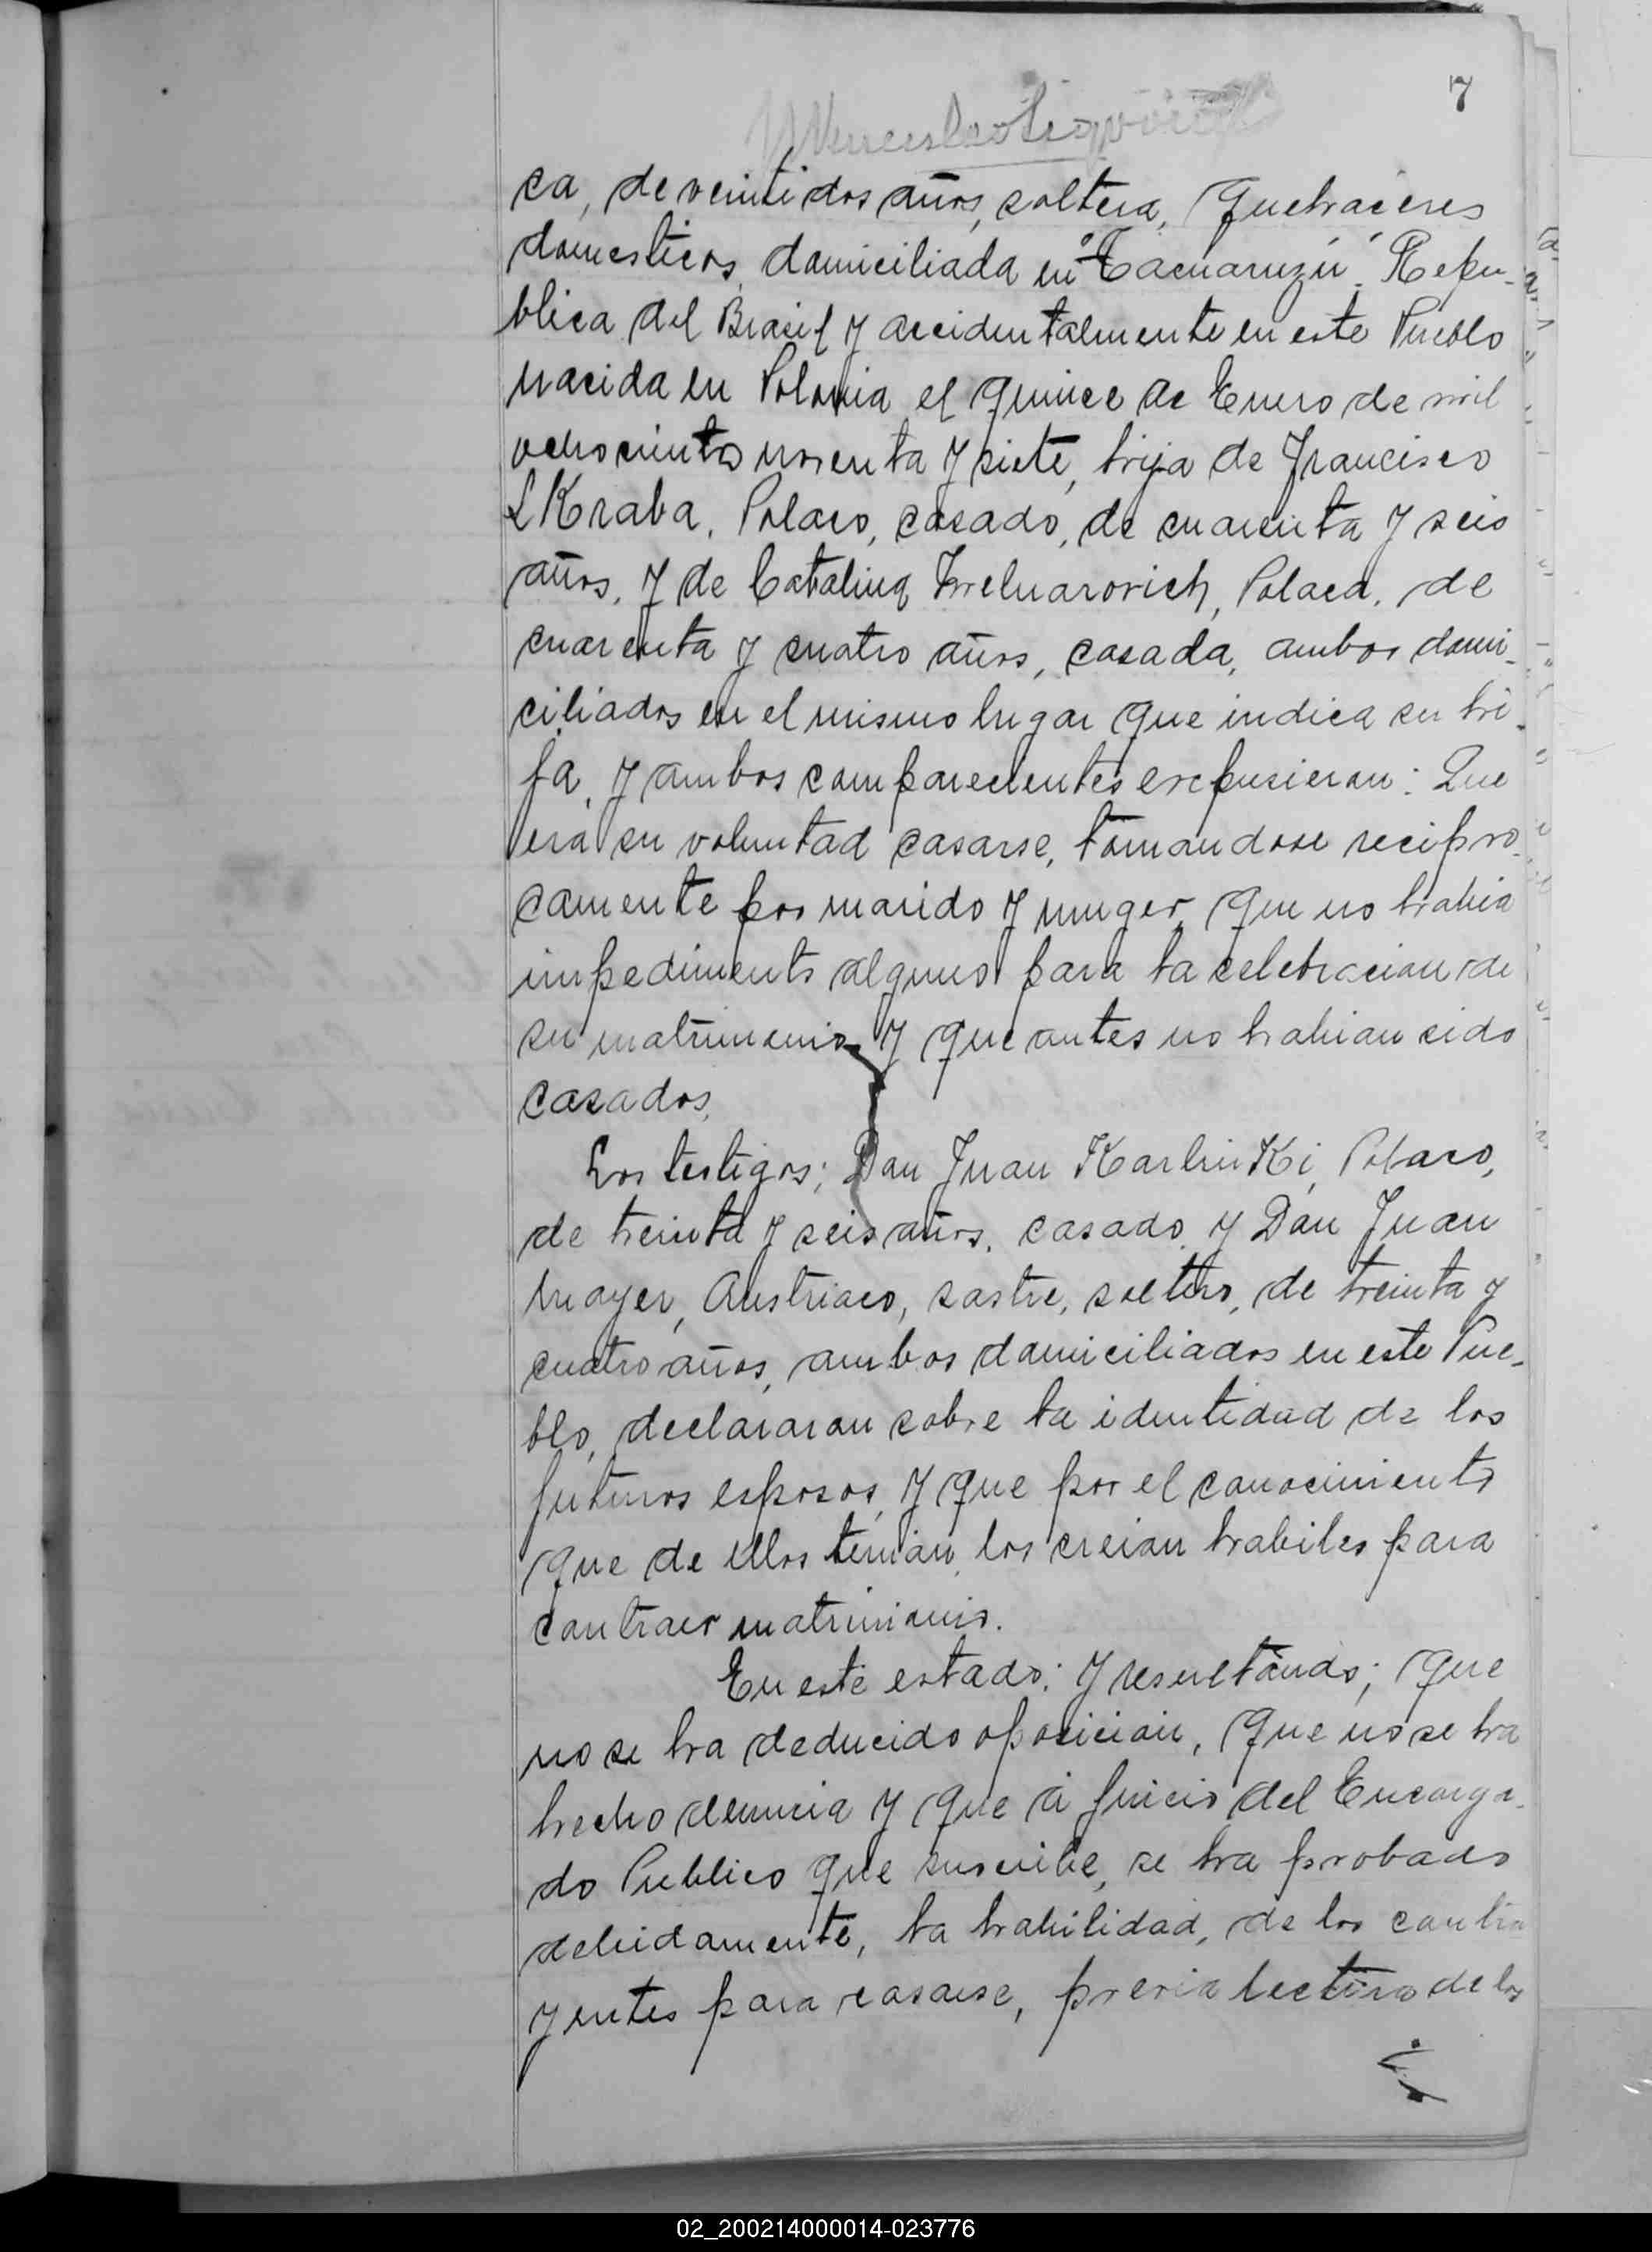 7
ca, de veinti dos años, soltera, quehaceres
domesticos, domiciliada en "Tacuaruzú". Repu-
blica del Brasil y accidentalmente en este Pueblo
nacida en Polonia el quince de Enero de mil
ochocientos noventa y siete, hija de Francisco
SKraba, Polaco, casado, de cuarenta y seis
años, y de Catalina Polaca, de
cuarenta y cuatro años, casada, ambos domi-
ciliados en el mismo lugar que indica su hi-
ja, y ambos comparecientes expusieron: Que
era su voluntad casarse, tomandose recipro-
camente por marido y muger, que no habia
impedimento alguno para la celebracion de
su matrimonio y que antes no habian sido
casados.
Los testigos; Don Juan KarlinKi, Polaco,
de treinta y seis años, casado y Don Juan
Mayer, Austriaco, sastre, soltero, de treinta y
cuatro años, ambos domiciliados en este Pue-
blo, declararon sobre la identidad de los
futuros esposos, y que por el conocimiento
que de ellos tenian, los creian habiles para
contraer matrimonio.
En este estado: y resultando; que
no se ha deducido oposicion, que no se ha
hecho denuncia y que á juicio del Encarga-
do Publico que suscribe, se ha probado
debidamente, la habilidad, de los contra
yentes para casarse, previa lectura de los
02_200214000014-023776